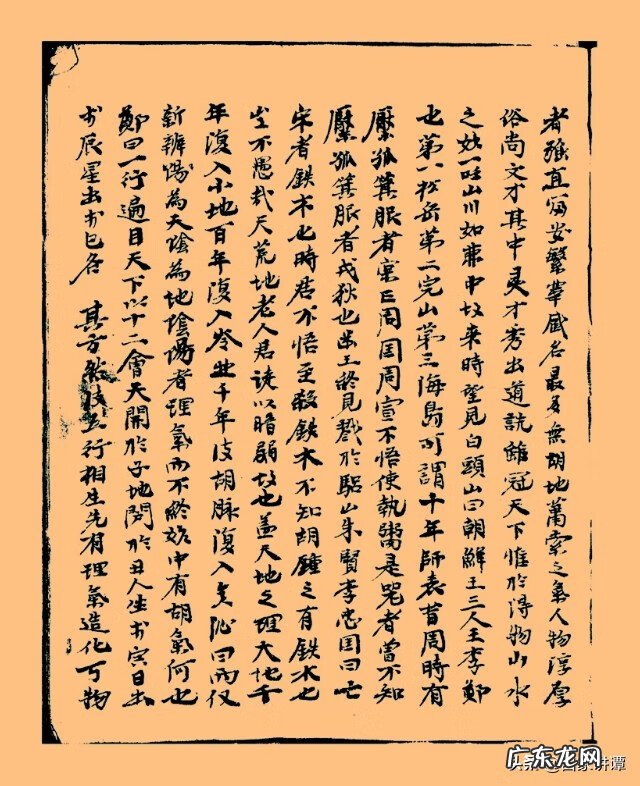 者强直富安繁華盛名最多無胡地蕭索之氣人物淳厚
俗尚文才其中灵才秀出道詵雖冠天下惟於得物山水
之妙一吐山川如形中坟来時望見白頭山曰朝鮮王三人王李鄭
也第一松岳第二完山第三海島可謂十年師表昔周時有
檿狐箕服者寔亡周国周宣不悟使執鬻是児者曾不知
檿狐箕服者戎狄也幽王終見戮於驪山朱賢李忠国曰亡
宋者鉄木也時君不悟至殺鉄木不知胡種之有鉄木也
豈不愚哉天荒地老人君読以暗弱坟也盖天地之理大地千
年復入小地百年復入岑出千年後胡脉復入矣沁曰而仅
新辨陽為天陰為地陰陽者理氣而不終始中有胡氣何也
鄭曰一行遍目天下以十二會天開於子地闢於丑人生於寅日出
於辰星出於巳各 其方然後五行相生先有理氣造化万物
广东龙网